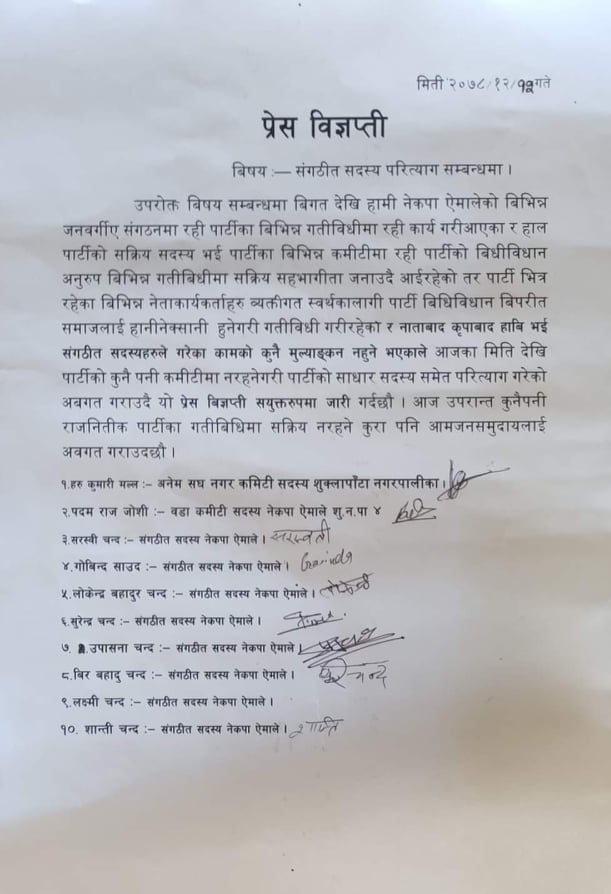 मिती २०७८/१२/१२गते
प्रेस विज्ञप्ती
बिषय :— संगठीत सदस्य परित्याग सम्बन्धमा ।
उपरोक्त बिषय सम्बन्धमा बिगत देखि हामी नेकपा ऐमालेको बिभिन्न
जनवर्गीए संगठनमा रही पार्टीका बिभिन्न गतीविधीमा रही कार्य गरीआएका र हाल
पार्टीको सक्रिय सदस्य भई पार्टीका बिभिन्न कमीटीमा रही पार्टीको बिधीविधान
अनुरुप बिभिन्न गतीबिधीमा सक्रिय सहभागीता जनाउदै आईरहेको तर पार्टी भित्र
रहेका बिभिन्न नेताकार्यकर्ताहरु व्यक्तीगत स्वर्थकालागी पार्टी बिधिविधान बिपरीत
समाजलाई हानीनेक्सानी हुनेगरी गतीविधी गरीरहेको र नाताबाद कृपाबाद हाबि भई
संगठीत सदस्यहरुले गरेका कामको कुनै मुल्याङ्कन नहुने भएकाले आजका मिति देखि
पार्टीको कुनै पनी कमीटीमा नरहनेगरी पार्टीको साधार सदस्य समेत परित्याग गरेको
अबगत गराउदै यो प्रेस बिज्ञप्ती सयुक्तरुपमा जारी गर्दछौ । आज उपरान्त कुनैपनी
राजनितीक पार्टीका गतीबिधिमा सक्रिय नरहने कुरा पनि आमजनसमुदायलाई
अवगत गराउदछौ ।
१.हरु कुमारी मल्ल :- अनेम सघ नगर कमिटी सदस्य शुक्लाफाँटा नगरपालीका ।
२.पदम राज जोशी :- वडा कमीटी सदस्य नेकपा ऐमाले शु.न.पा ४
३.सरस्वी चन्द :- संगठीत सदस्य नेकपा ऐमाले । सरस्वती
४.गोबिन्द साउद :- संगठीत सदस्य नेकपा ऐमाले । Govinda
५.लोकेन्द्र बहादुर चन्द :- संगठीत सदस्य नेकपा ऐमाले ।
६.सुरेन्द्र चन्द :- संगठीत सदस्य नेकपा ऐमाले ।
७. उपासना चन्द :- संगठीत सदस्य नेकपा ऐमाले ।
८.बिर बहादु चन्द :- संगठीत सदस्य नेकपा ऐमाले ।
९.लक्ष्मी चन्द :- संगठीत सदस्य नेकपा ऐमाले ।
१०. शान्ती चन्द :- संगठीत सदस्य नेकपा ऐमाले । शान्ति